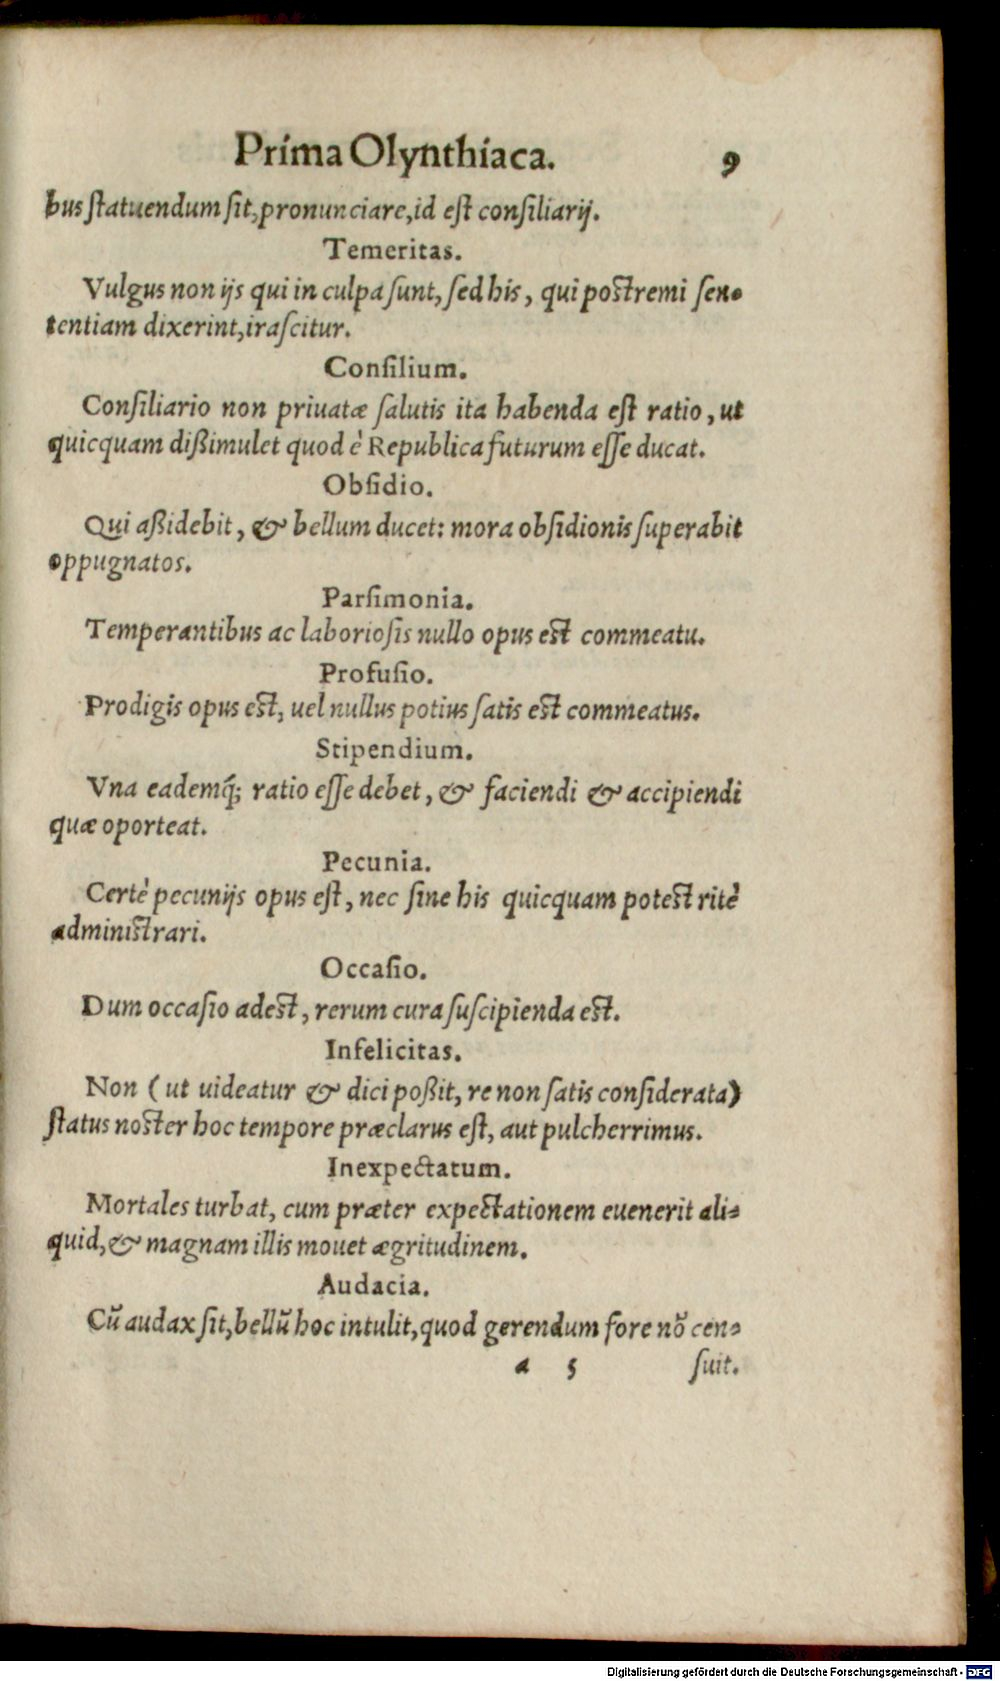 Prima Olynthiaca. 9
bus ſtatuendum ſit, pronunciare, id eſt conſiliarij.
Temeritas.
Vulgus non ijs qui in culpa ſunt, ſed his, qui poſtremi ſen-
tentiam dixerint, iraſcitur.
Conſilium.
Conſiliario non priuatæ ſalutis ita habenda eſt ratio, ut
quicquam dißimulet quod è Republica futurum eſſe ducat.
Obſidio.
Qui aßidebit, & bellum ducet: mora obſidionis ſuperabit
oppugnatos.
Parſimonia.
Temperantibus ac laborioſis nullo opus eſt commeatu.
Profuſio.
Prodigis opus eſt, uel nullus potius ſatis eſt commeatus.
Stipendium.
Vna eademq́; ratio eſſe debet, & faciendi & accipiendi
quæ oporteat.
Pecunia.
Certè pecunijs opus eſt, nec ſine his quicquam poteſt ritè
adminiſtrari.
Occaſio.
Dum occaſio adeſt, rerum cura ſuſcipienda eſt.
Infelicitas.
Non (ut uideatur & dici poßit, re non ſatis conſiderata)
ſtatus noſter hoc tempore præclarus eſt, aut pulcherrimus.
Inexpectatum.
Mortales turbat, cum præter expectationem euenerit ali-
quid, & magnam illis mouet ægritudinem.
Audacia.
Cũ audax ſit, bellũ hoc intulit, quod gerendum fore nõ cen-
a 5 ſuit.
Digitalisierung gefördert durch die Deutsche Forschungsgemeinschaft - DFG